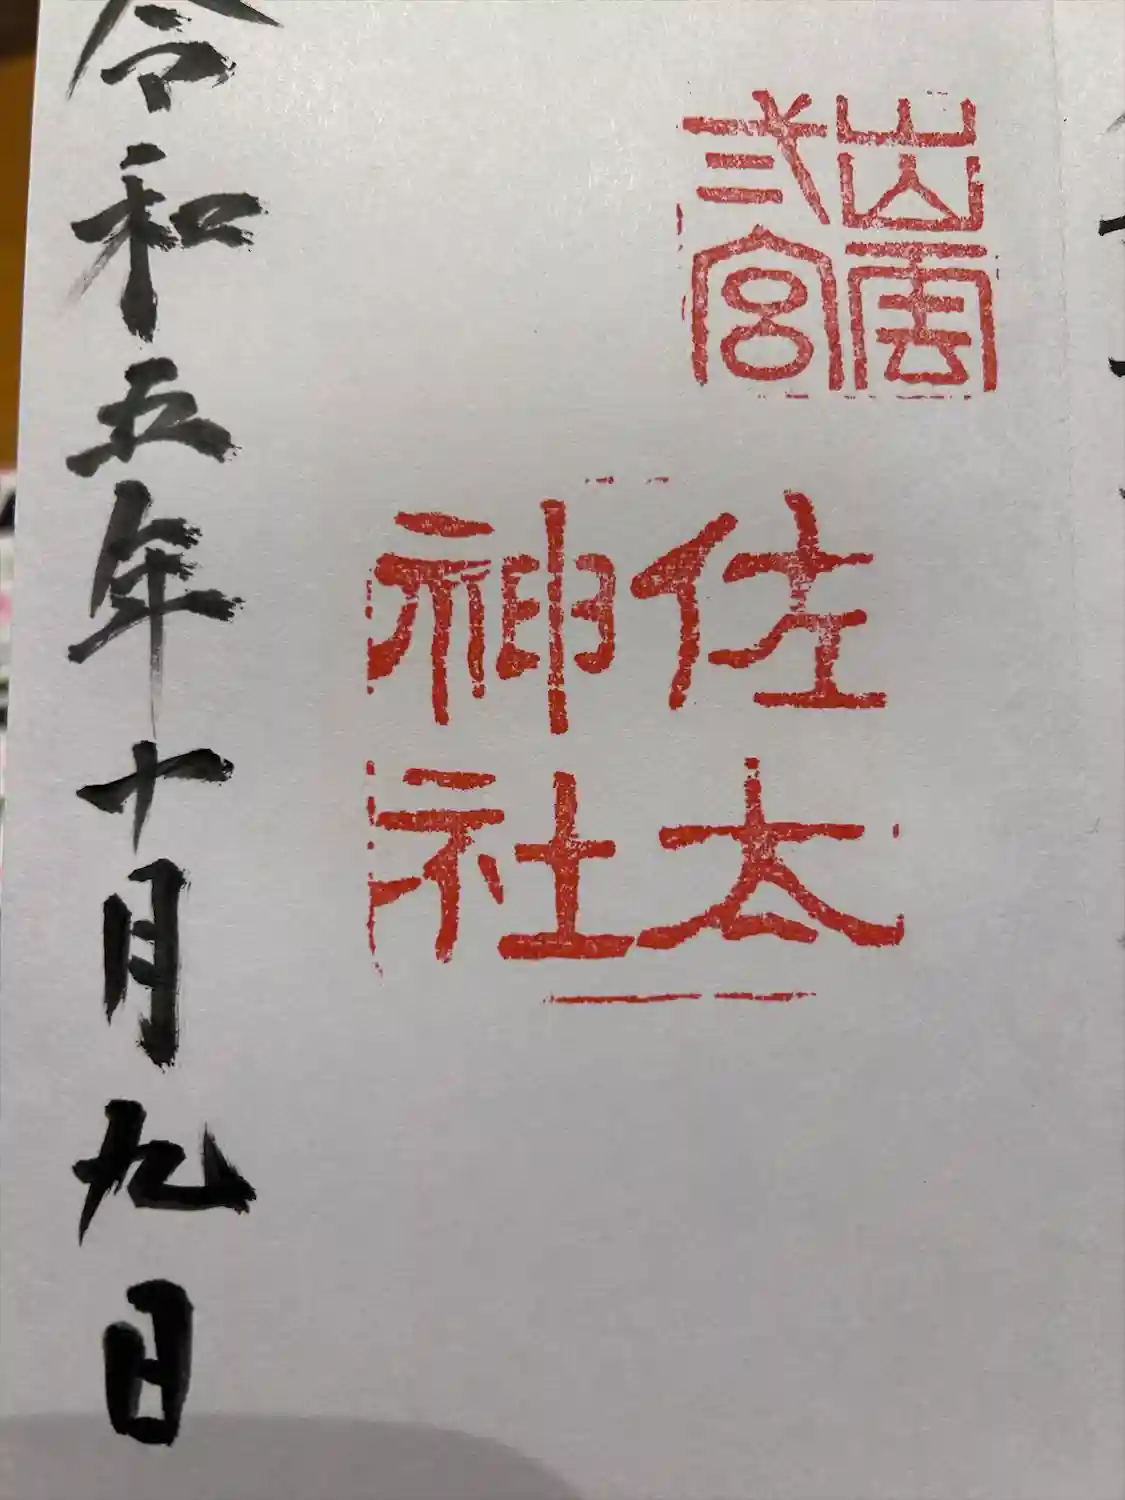 出雲
弐宮
佐太
神社
令和五年十月九日